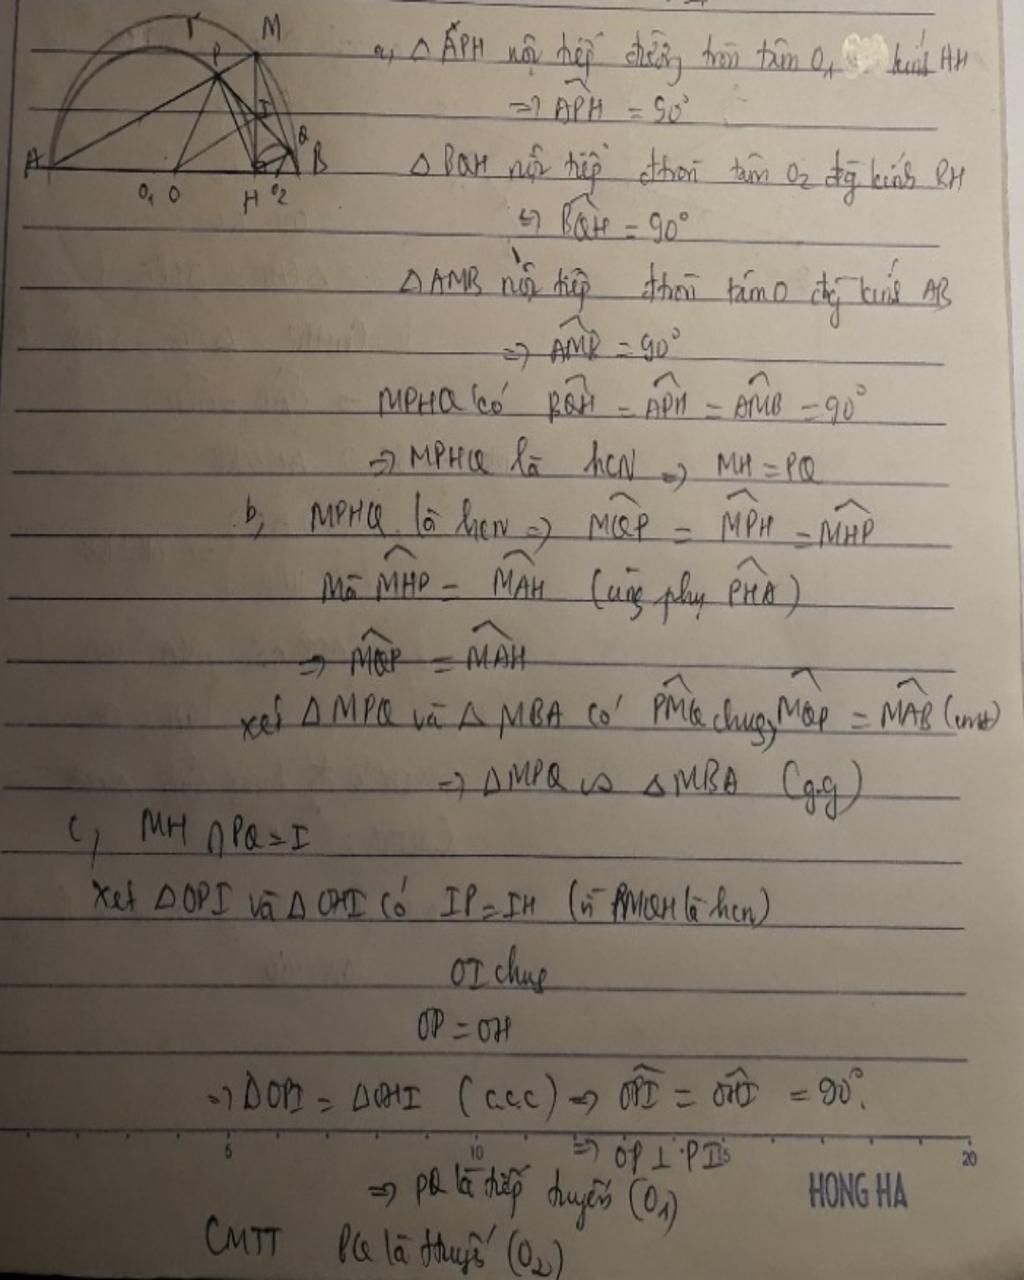 M
P
I
Q
A
B
O₁ O
H O₂
a, △ APH nội tiếp đường tròn tâm O₁ kính AH
=> APH = 90°
△ BQH nội tiếp đtròn tâm O₂ đg kính BH
=> BQH = 90°
△ AMB nội tiếp đtròn tâm O đg kính AB
=> AMB = 90°
MPHQ có BQH = APH = AMB = 90°
=> MPHQ là hcN => MH = PQ
b, MPHQ là hcn => MQP = MPH = MHP
Mà MHP = MAH (cùng phụ PHA)
=> MQP = MAH
xét △ MPQ và △ MBA có PMQ chung, MQP = MAB (cmt)
=> △ MPQ ∽ △ MBA (g.g)
c, MH ∩ PQ = I
Xét △ OPI và △ OHI có IP = IH (vì PMQH là hcn)
OI chug
OP = OH
=> △ OPI = △ OHI (c.c.c) => OPI = OHI = 90°.
=> OP ⊥ PI
5 10 15 20
=> PQ là tiếp tuyến (O₁)
HONG HA
CMTT PQ là ttuyến (O₂)